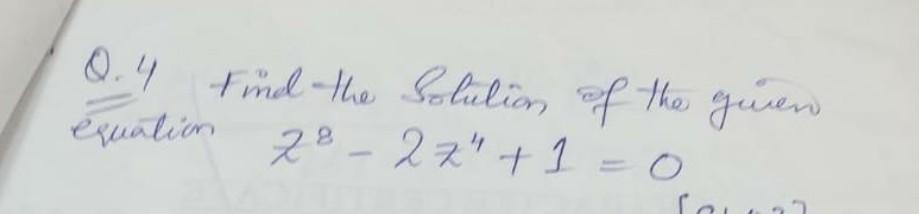 Q.4 Find the Solution of the given
equation z⁸ - 2z⁴ + 1 = 0